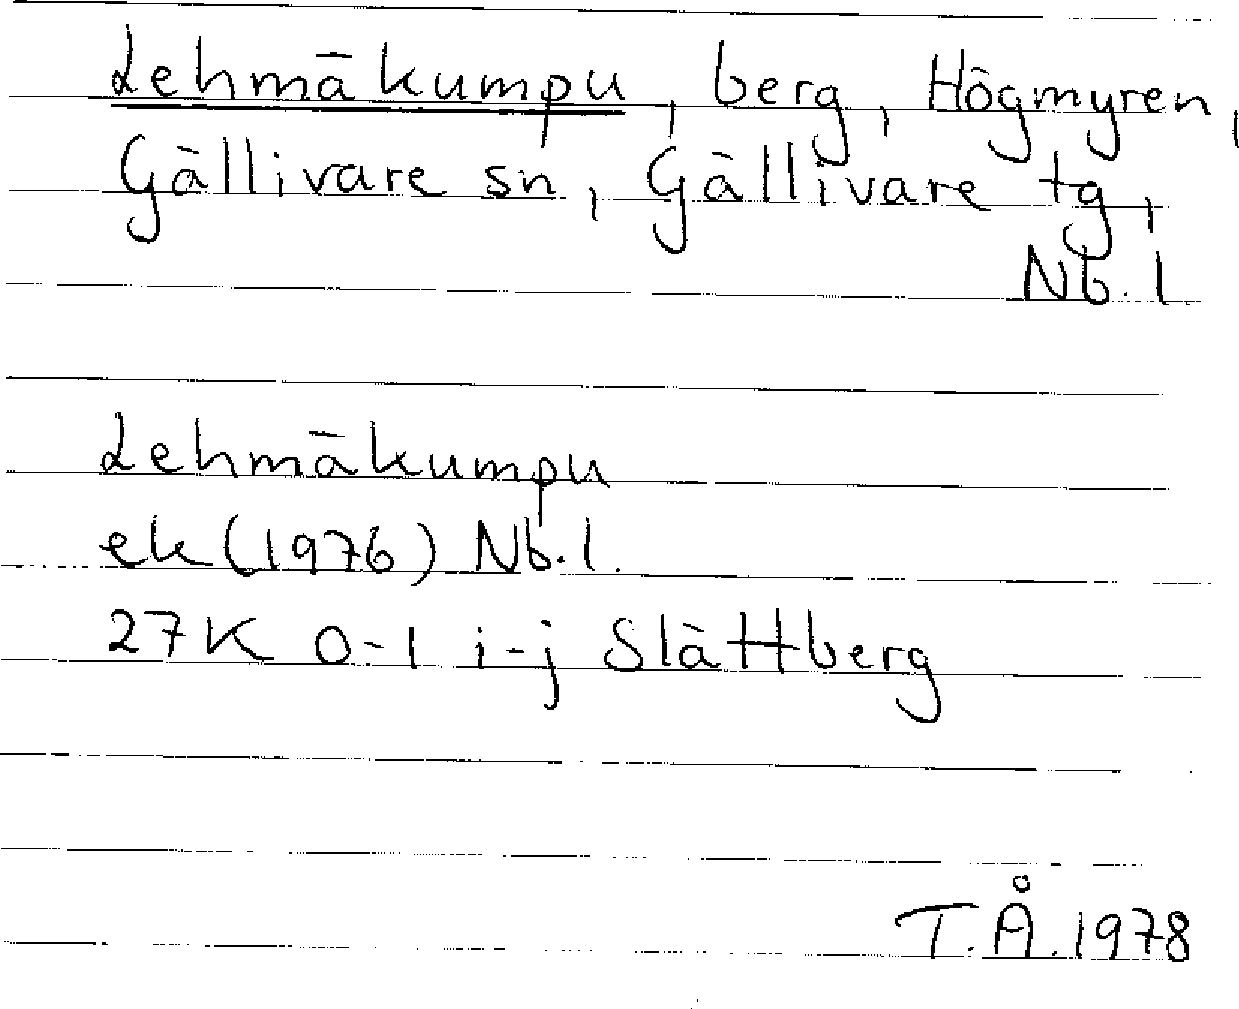 Lehmäkumpu, berg, Högmyren,
Gällivare sn, Gällivare tg,
Nb. l
Lehmäkumpu
ek (1976) Nb. l.
27K 0-1 i-j Slättberg
T.Å. 1978